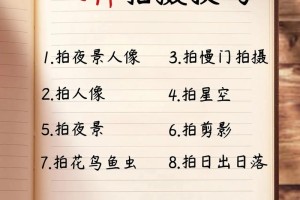 拍摄技巧
1.拍夜景人像 3.拍慢门拍摄
2.拍人像 4.拍星空
5.拍夜景 6.拍剪影
7.拍花鸟鱼虫 8.拍日出日落